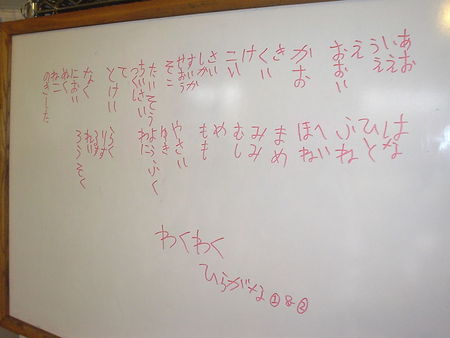 あお
いえ
うえ
え
おおい
かお
き
くい
け
こい
そこ
たいそう
ちいさい
て
とけい
なく
におい
ぬく
ねこ
のきした
はな
ひと
ふね
へい
ほね
まめ
みみ
むし
め
もも
やさい
ゆき
ようふく
わに
らく
りす
るす
れい
ろうそく
わくわく
ひらがな①&②